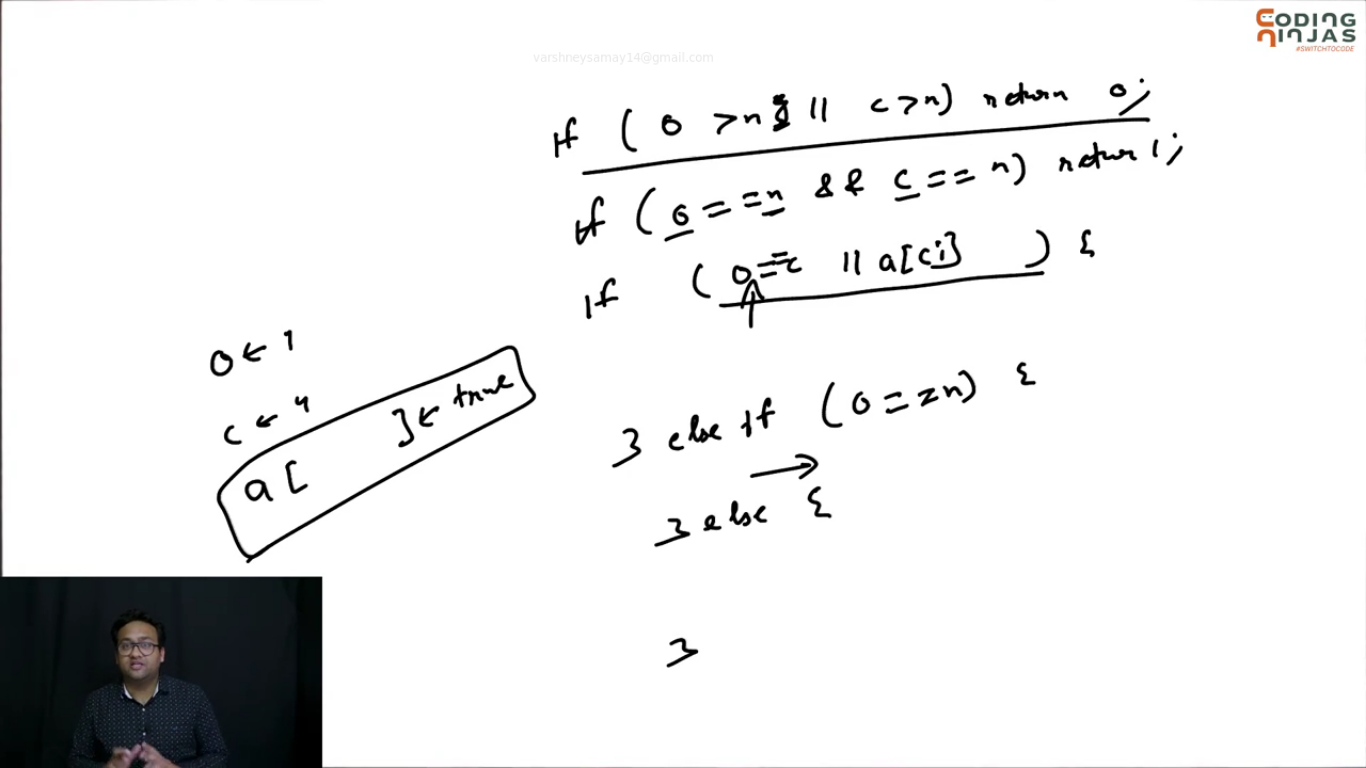 CODING NINJAS
#SWITCHTOCODE
varshneysamay14@gmail.com
if ( o > n || c > n) return 0;
if ( o == n && c == n) return 1;
if ( o == c || a[ci] ) {
o ← 1
c ← 4
a [ ] ← true
} else if (o == n) {
} else {
}